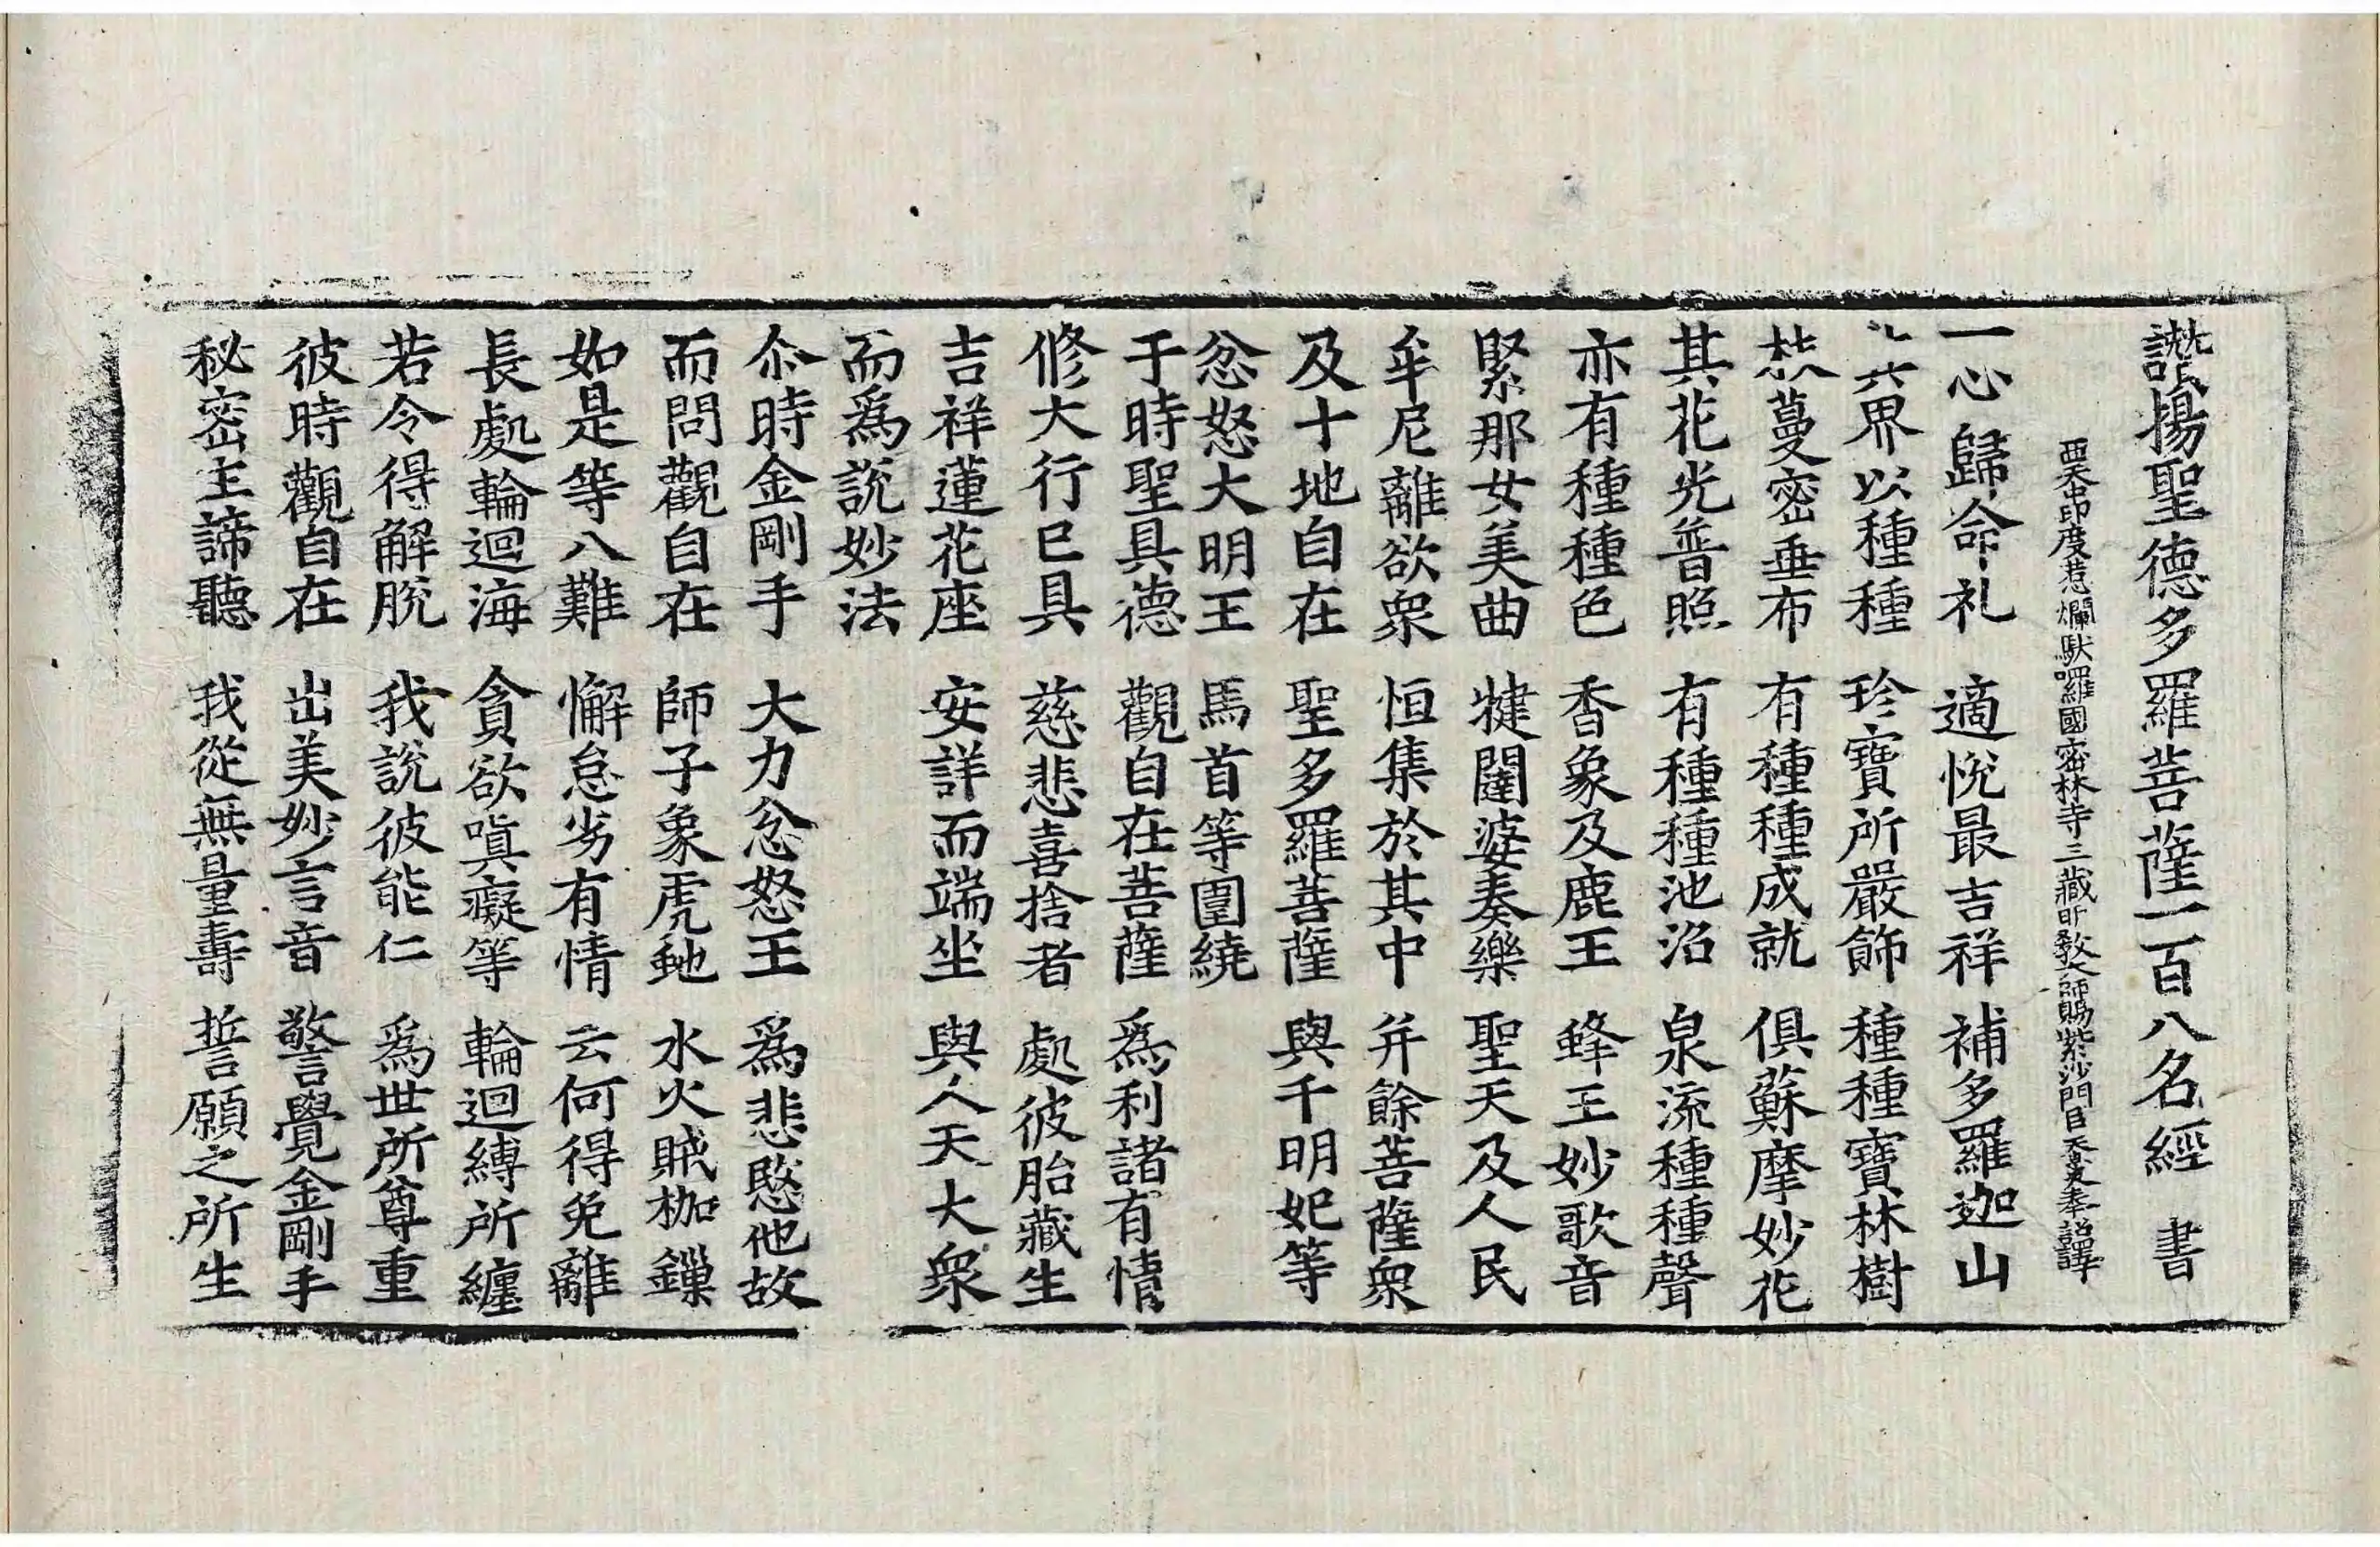 讃揚聖德多羅菩薩一百八名經 書
西天中印度惹爛馱囉國密林寺三藏明教大師賜紫沙門臣天息災奉詔譯
一心歸命礼 適悅最吉祥 補多羅迦山
六界以種種 珍寶所嚴飾 種種寶林樹
蔓密垂布 有種種成就 俱蘇摩妙花
其花光普照 有種種池沼 泉流種種聲
亦有種種色 香象及鹿王 蜂王妙歌音
緊那女美曲 犍闥婆奏樂 聖天及人民
牟尼離欲衆 恒集於其中 并餘菩薩衆
及十地自在 聖多羅菩薩 與千明妃等
忿怒大明王 馬首等圍繞
于時聖具德 觀自在菩薩 爲利諸有情
修大行已具 慈悲喜捨者 處彼胎藏生
吉祥蓮花座 安詳而端坐 與人天大衆
而爲說妙法
尒時金剛手 大力忿怒王 爲悲愍他故
而問觀自在 師子象虎虵 水火賊枷鏁
如是等八難 懈怠劣有情 云何得免離
長處輪迴海 貪欲嗔癡等 輪迴縛所纏
若令得解脫 我說彼能仁 爲世所尊重
彼時觀自在 出美妙言音 警覺金剛手
秘密主諦聽 我從無量壽 誓願之所生